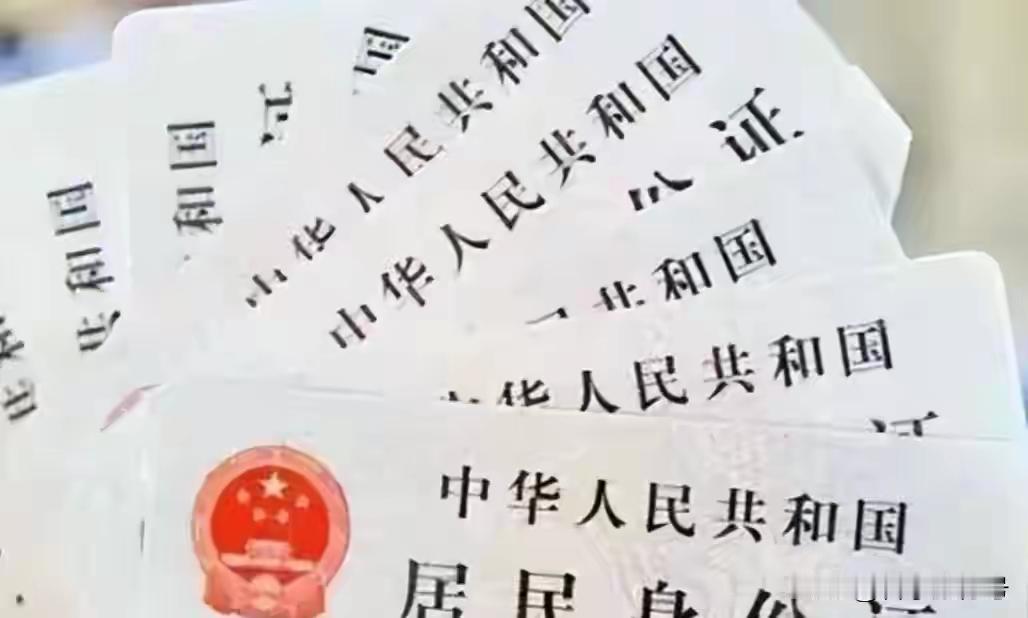 国
和国
证
国
中华人民共和国
中华人民共和国
份证
共和国
中华人民共和国
证
中华人民共和国
居民身份证